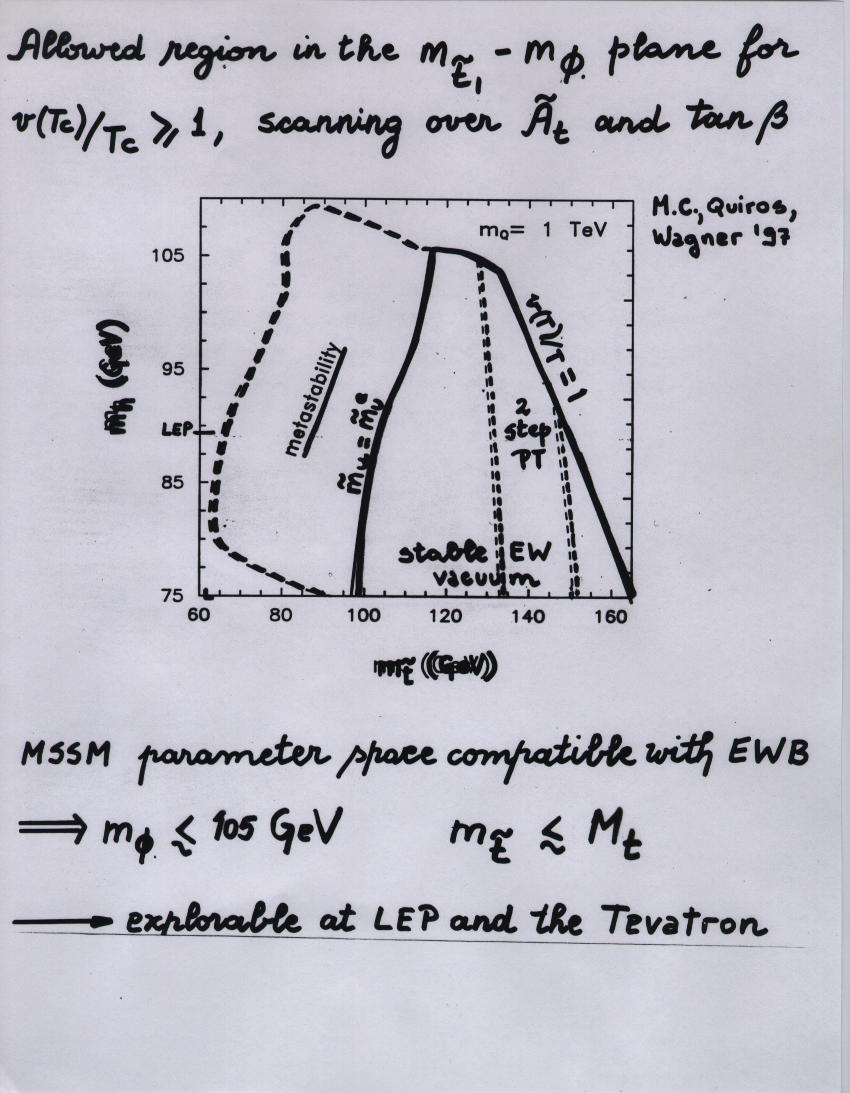 Allowed region in the m_t̃₁ - m_ϕ plane for
v(Tc)/Tc ⩾ 1, scanning over Ã_t and tan β
M.C., Quiros,
Wagner '97
m_Q = 1 TeV
105
95
LEP
85
75
m_h (GeV)
metastability
m̃_u = m̃_u^c
v(T)/T = 1
2
step
PT
stable EW
vacuum
60 80 100 120 140 160
m_t̃ (GeV)
MSSM parameter space compatible with EWB
⟹ m_ϕ ≲ 105 GeV m_t̃ ≲ M_t
⟶ explorable at LEP and the Tevatron